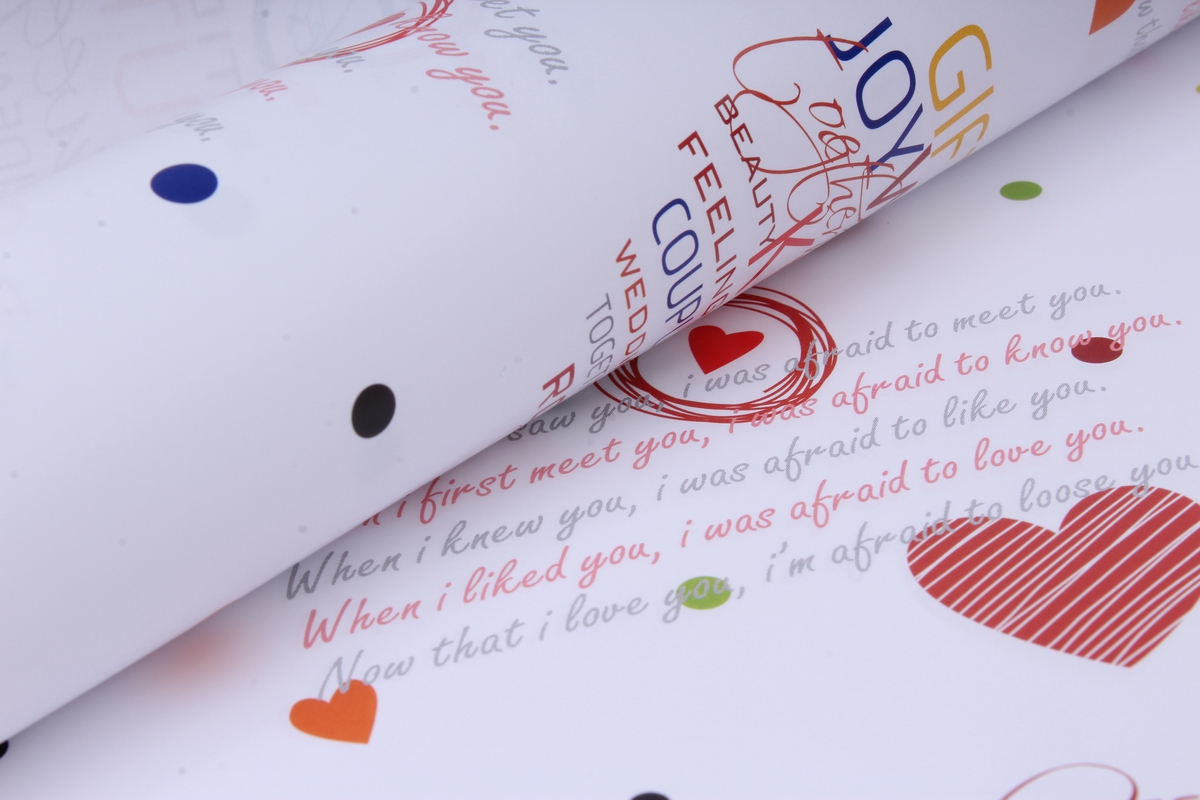 et you.
know you.
you.
you,
you,
GIF
JOY
Together
BEAUTY
FEELING
COUP
WEDD
TOGE
saw you, i was afraid to meet you.
n i first meet you, i was afraid to know you.
When i knew you, i was afraid to like you.
When i liked you, i was afraid to love you.
Now that i love you, i'm afraid to loose you